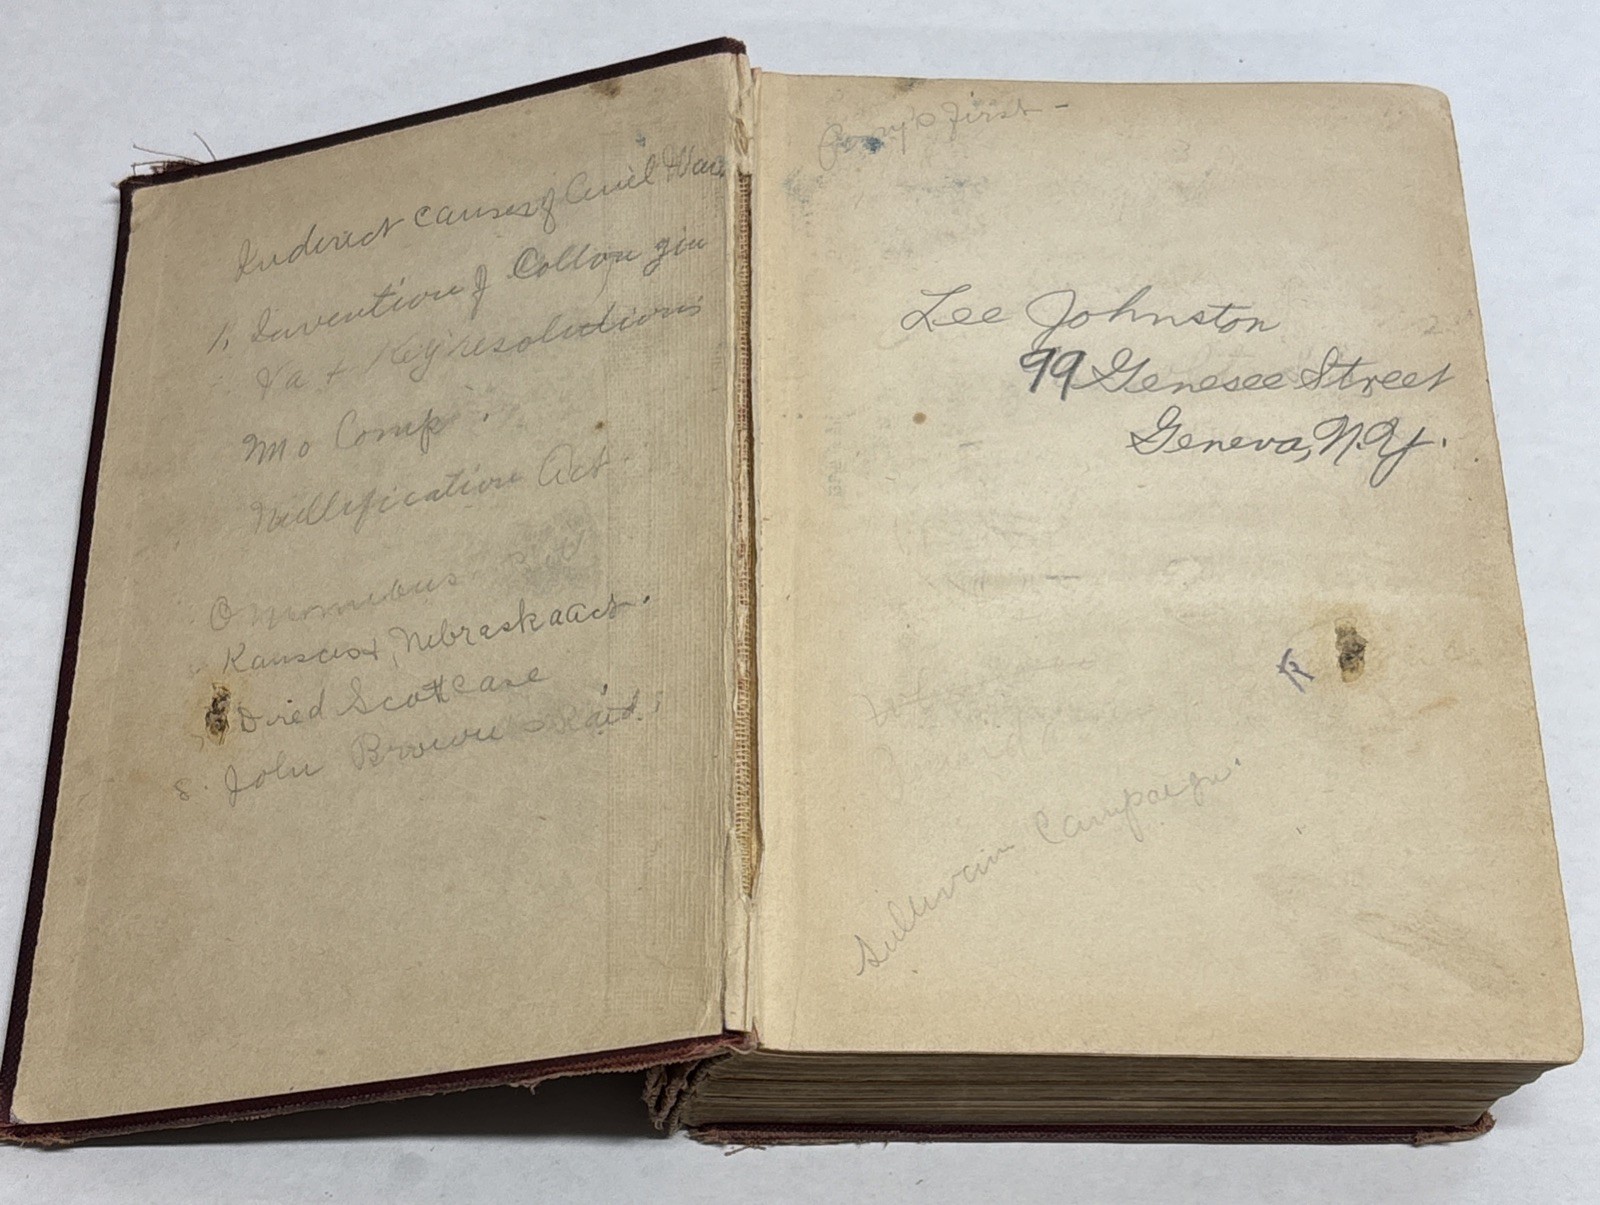 Indirect causes of Civil War.
1. Invention of Cotton gin
Va + Ky resolutions
Mo Comp.
Nullification Act.
Ommnibus Bill
Kansas, Nebraska Act.
Dred Scott case
8. John Brown's Raid.
Perry's First -
Lee Johnston
99 Genesee Street
Geneva, N.Y.
Sullivan Campaign.